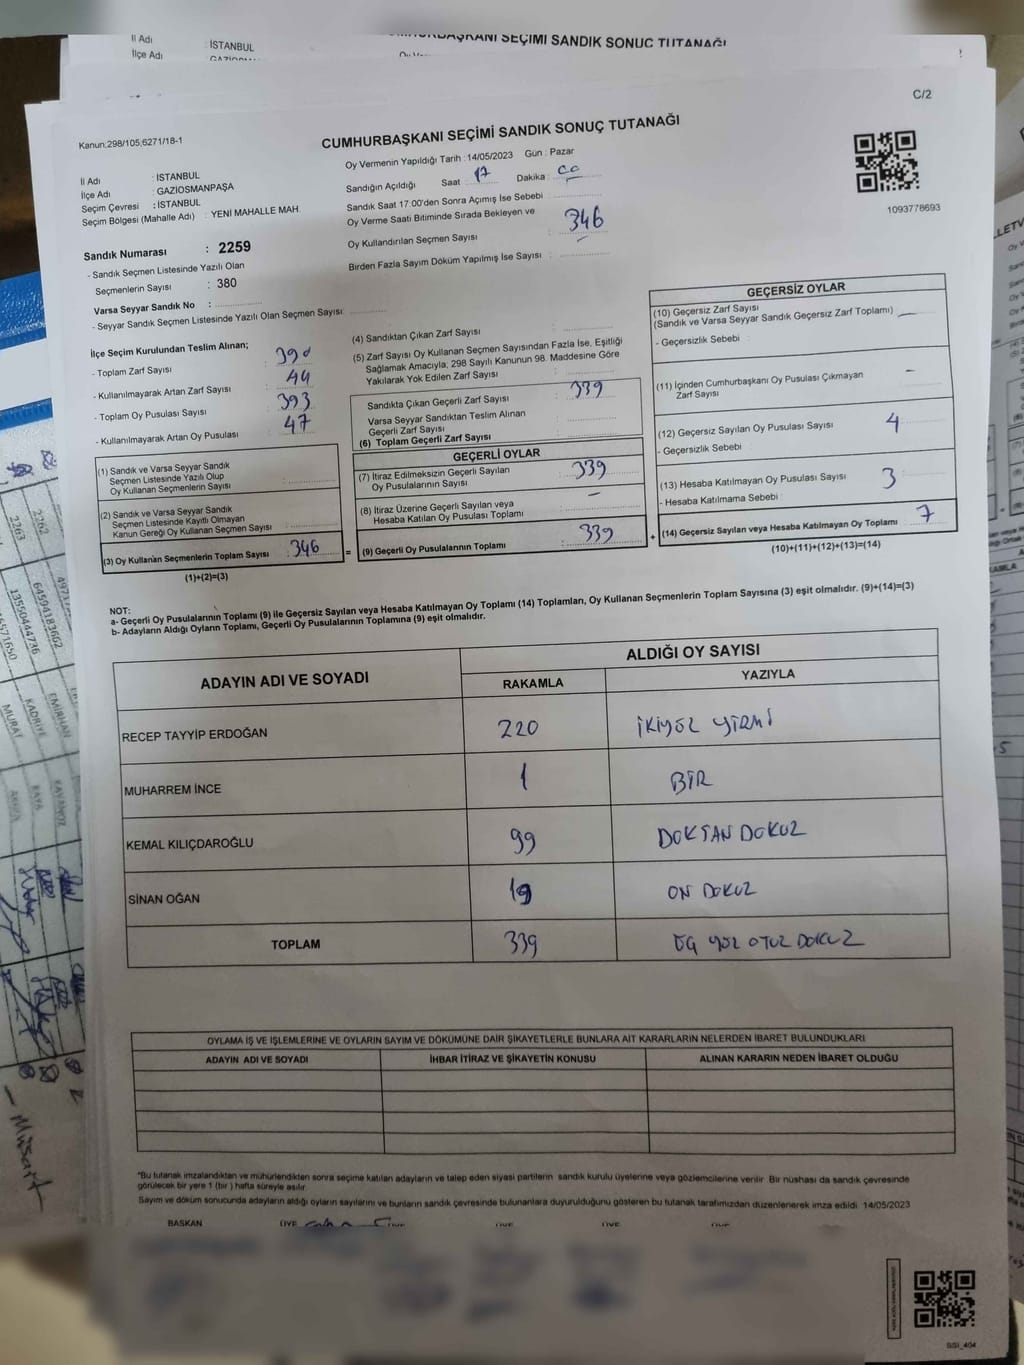 İl Adı : İSTANBUL
İlçe Adı
CUMHURBAŞKANI SEÇİMİ SANDIK SONUÇ TUTANAĞI
C/2
Kanun;298/105,6271/18-1
CUMHURBAŞKANI SEÇİMİ SANDIK SONUÇ TUTANAĞI
1093778693
İl Adı : İSTANBUL
İlçe Adı : GAZİOSMANPAŞA
Seçim Çevresi : İSTANBUL
Seçim Bölgesi (Mahalle Adı) : YENİ MAHALLE MAH.
Oy Vermenin Yapıldığı Tarih : 14/05/2023 Gün : Pazar
Sandığın Açıldığı Saat : 17 Dakika : 00
Sandık Saat 17:00'den Sonra Açımış İse Sebebi :
Oy Verme Saati Bitiminde Sırada Bekleyen ve
Oy Kullandırılan Seçmen Sayısı : 346
Birden Fazla Sayım Döküm Yapılmış İse Sayısı :
Sandık Numarası : 2259
- Sandık Seçmen Listesinde Yazılı Olan
Seçmenlerin Sayısı : 380
Varsa Seyyar Sandık No :
- Seyyar Sandık Seçmen Listesinde Yazılı Olan Seçmen Sayısı:
İlçe Seçim Kurulundan Teslim Alınan;
- Toplam Zarf Sayısı : 390
- Kullanılmayarak Artan Zarf Sayısı : 44
- Toplam Oy Pusulası Sayısı : 393
- Kullanılmayarak Artan Oy Pusulası : 47
(1) Sandık ve Varsa Seyyar Sandık
Seçmen Listesinde Yazılı Olup
Oy Kullanan Seçmenlerin Sayısı :
(2) Sandık ve Varsa Seyyar Sandık
Seçmen Listesinde Kayıtlı Olmayan
Kanun Gereği Oy Kullanan Seçmen Sayısı :
(3) Oy Kullanan Seçmenlerin Toplam Sayısı : 346
(1)+(2)=(3)
(4) Sandıktan Çıkan Zarf Sayısı :
(5) Zarf Sayısı Oy Kullanan Seçmen Sayısından Fazla İse, Eşitliği
Sağlamak Amacıyla, 298 Sayılı Kanunun 98. Maddesine Göre
Yakılarak Yok Edilen Zarf Sayısı :
Sandıkta Çıkan Geçerli Zarf Sayısı : 339
Varsa Seyyar Sandıktan Teslim Alınan
Geçerli Zarf Sayısı :
(6) Toplam Geçerli Zarf Sayısı :
GEÇERLİ OYLAR
(7) İtiraz Edilmeksizin Geçerli Sayılan
Oy Pusulalarının Sayısı : 339
(8) İtiraz Üzerine Geçerli Sayılan veya
Hesaba Katılan Oy Pusulası Toplamı : –
= (9) Geçerli Oy Pusulalarının Toplamı : 339
GEÇERSİZ OYLAR
(10) Geçersiz Zarf Sayısı
(Sandık ve Varsa Seyyar Sandık Geçersiz Zarf Toplamı) : –
- Geçersizlik Sebebi :
(11) İçinden Cumhurbaşkanı Oy Pusulası Çıkmayan
Zarf Sayısı : –
(12) Geçersiz Sayılan Oy Pusulası Sayısı : 4
- Geçersizlik Sebebi :
(13) Hesaba Katılmayan Oy Pusulası Sayısı : 3
- Hesaba Katılmama Sebebi :
+ (14) Geçersiz Sayılan veya Hesaba Katılmayan Oy Toplamı : 7
(10)+(11)+(12)+(13)=(14)
NOT:
a- Geçerli Oy Pusulalarının Toplamı (9) ile Geçersiz Sayılan veya Hesaba Katılmayan Oy Toplamı (14) Toplamları, Oy Kullanan Seçmenlerin Toplam Sayısına (3) eşit olmalıdır. (9)+(14)=(3)
b- Adayların Aldığı Oyların Toplamı, Geçerli Oy Pusulalarının Toplamına (9) eşit olmalıdır.
ADAYIN ADI VE SOYADI ALDIĞI OY SAYISI
RAKAMLA YAZIYLA
RECEP TAYYİP ERDOĞAN 220 İKİYÜZ YİRMİ
MUHARREM İNCE 1 BİR
KEMAL KILIÇDAROĞLU 99 DOKSAN DOKUZ
SİNAN OĞAN 19 ON DOKUZ
TOPLAM 339 ÜÇ YÜZ OTUZ DOKUZ
OYLAMA İŞ VE İŞLEMLERİNE VE OYLARIN SAYIM VE DÖKÜMÜNE DAİR ŞİKAYETLERLE BUNLARA AİT KARARLARIN NELERDEN İBARET BULUNDUKLARI
ADAYIN ADI VE SOYADI İHBAR İTİRAZ VE ŞİKAYETİN KONUSU ALINAN KARARIN NEDEN İBARET OLDUĞU
*Bu tutanak imzalandıktan ve mühürlendikten sonra seçime katılan adayların ve talep eden siyasi partilerin sandık kurulu üyelerine veya gözlemcilerine verilir. Bir nüshası da sandık çevresinde
görülecek bir yere 1 (bir ) hafta süreyle asılır.
Sayım ve döküm sonucunda adayların aldığı oyların sayılarını ve bunların sandık çevresinde bulunanlara duyurulduğunu gösteren bu tutanak tarafımızdan düzenlenerek imza edildi. 14/05/2023
BAŞKAN ÜYE ÜYE ÜYE ÜYE ÜYE
SSI_404
2263
2262
13550444736
64594183662
MURAT
KADRİYE
EMİRHAN
KAYA